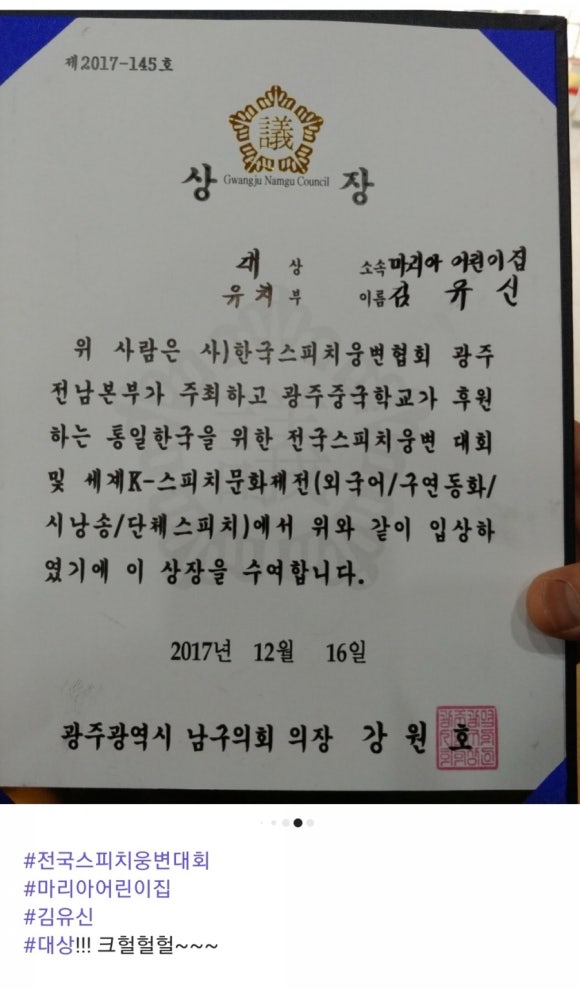 제2017-145호
議
Gwangju Namgu Council
상 장
대 상 소속 마리아 어린이집
유치부 이름 김 유 신
위 사람은 사)한국스피치웅변협회 광주
전남본부가 주최하고 광주중국학교가 후원
하는 통일한국을 위한 전국스피치웅변 대회
및 세계K-스피치문화제전(외국어/구연동화/
시낭송/단체스피치)에서 위와 같이 입상하
였기에 이 상장을 수여합니다.
2017년 12월 16일
광주광역시 남구의회 의장 강 원 호
#전국스피치웅변대회
#마리아어린이집
#김유신
#대상!!! 크헐헐헐~~~